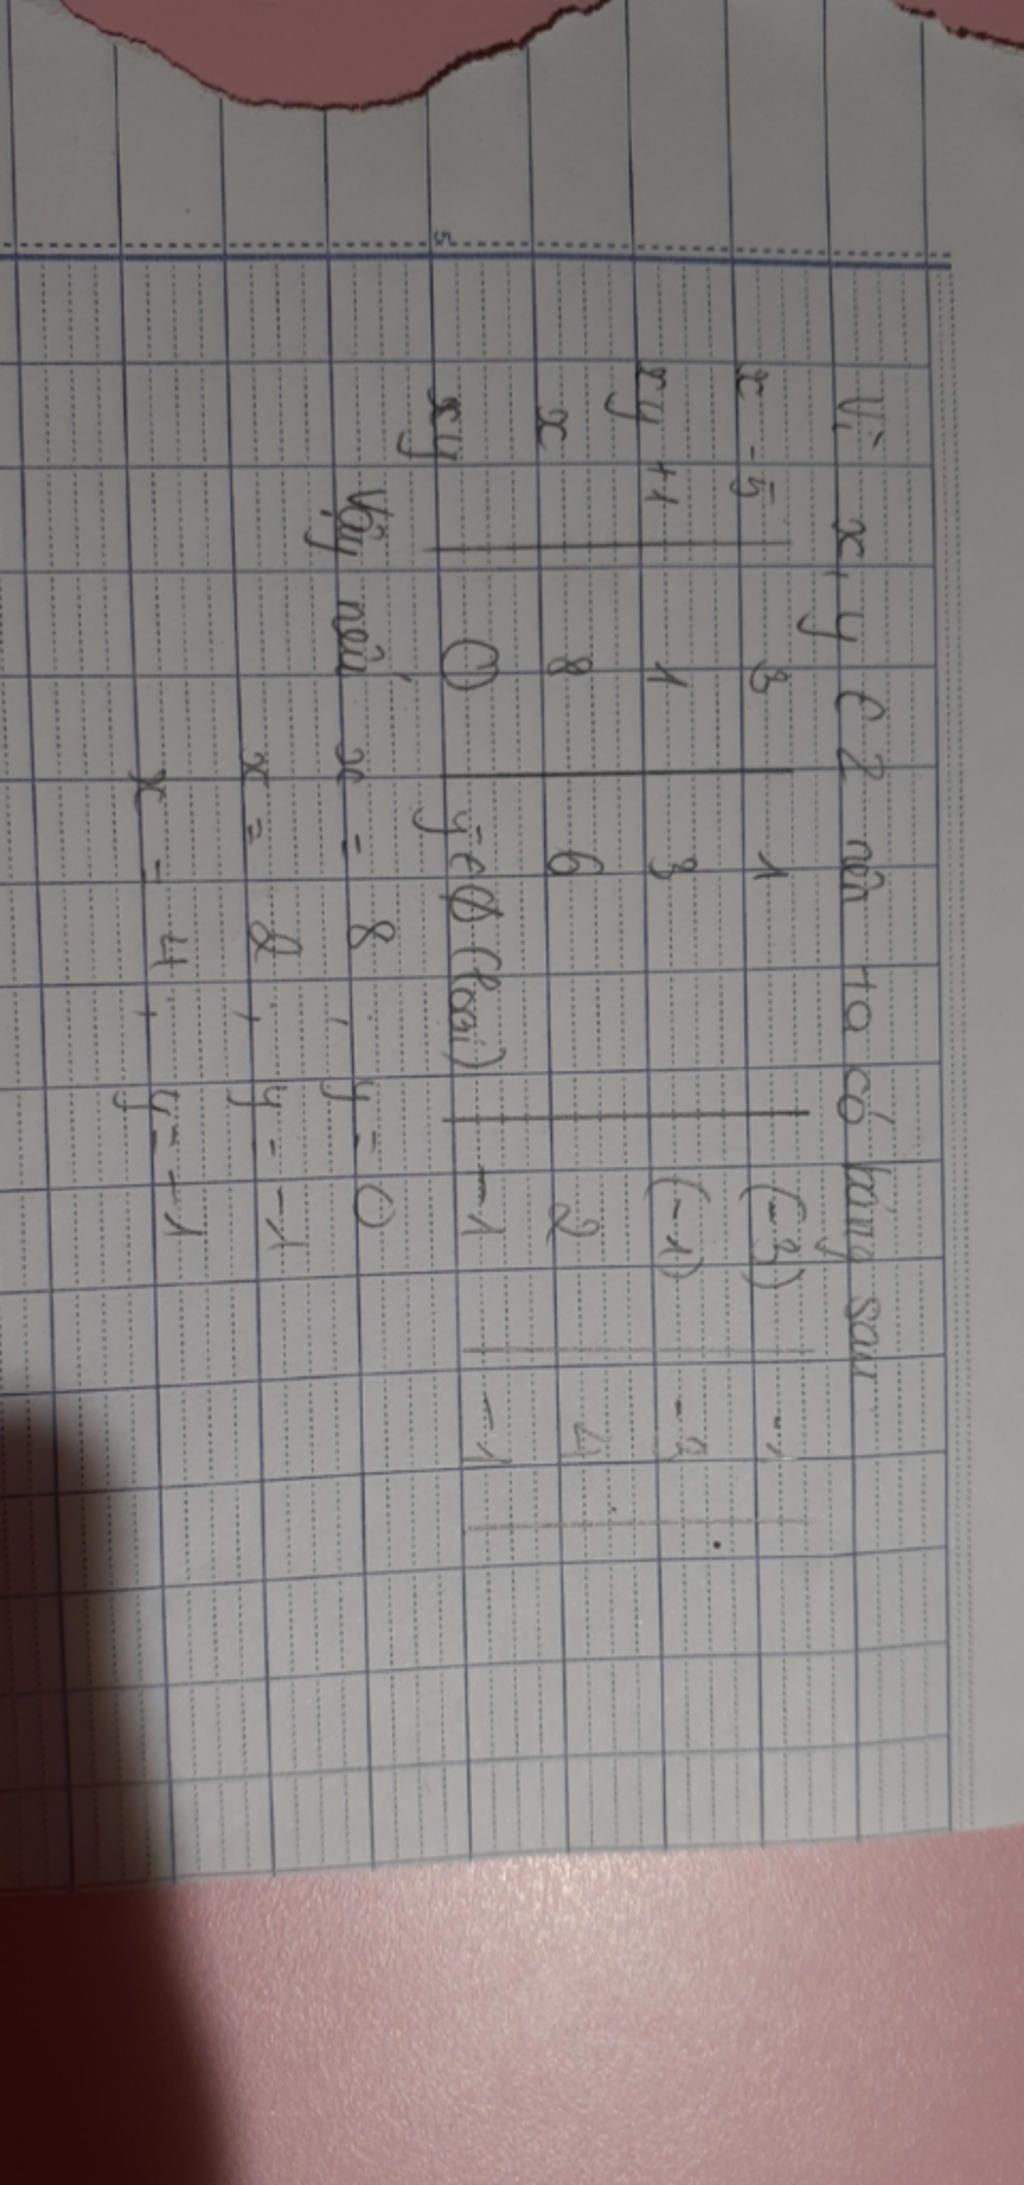 Vì x, y ∈ Z nên ta có bảng sau
x - 5 | 3 | 1 | (-3) | -1
xy + 1 | 1 | 3 | (-1) | -3
x | 8 | 6 | 2 | 4
xy | 0 | y ∈ ∅ (loại) | -1 | -1
Vậy nếu x = 8, y = 0
x = 2, y = -1
x = 4, y = -1